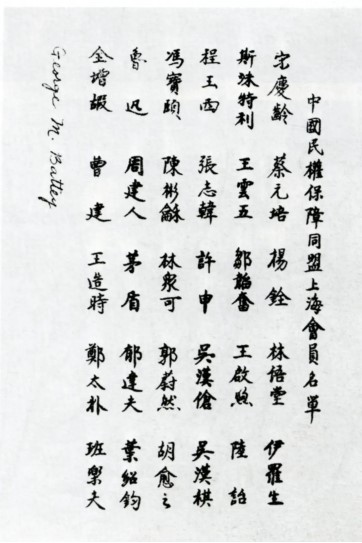 中國民權保障同盟上海會員名單
宋慶齡 蔡元培 楊銓 林語堂 伊羅生
斯沫特利 王雲五 鄒韜奮 王啟煦 陸詒
程王西 張志韓 許申 吳漢傖 吳漢棋
馮寶頤 陳彬龢 林眾可 郭蔚然 胡愈之
魯迅 周建人 茅盾 郁達夫 葉紹鈞
全增嘏 曹建 王造時 鄭太朴 班樂夫
George M. Battey